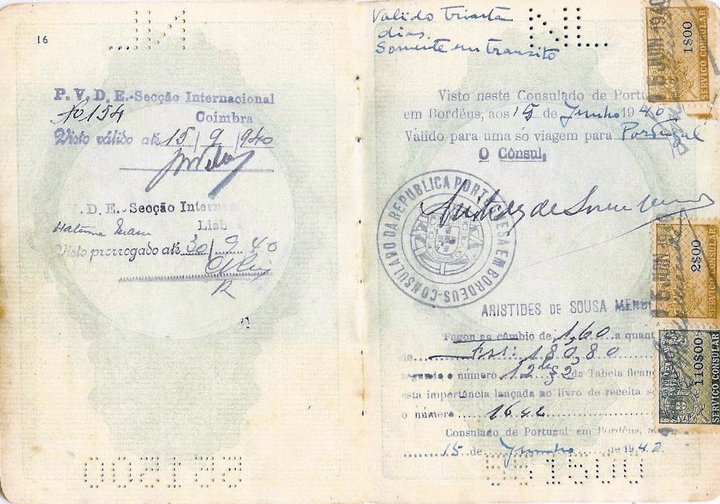 16
P. V. D. E.-Secção Internacional
No 154 Coimbra
Visto válido até 15 / 9 / 940
V. D. E.-Secção Interna
Lisb
Visto prorrogado até 30 / 9 / 40
Valido Trinta
dias.
Somente em transito
NL
Visto neste Consulado de Portu
em Bordéus, aos 15 de Junho 1940
Válido para uma só viagem para Portugal
O Cônsul,
CONSULADO DA REPUBLICA PORTUGUESA EM BORDEUS
Aristides de Sousa Mendes
ARISTIDES DE SOUSA MENDE
Pagou ao câmbio de 1,60 a quant
de Frs: 180,80
segundo o número 12 da Tabela fican
esta importância lançada no livro de receita so
o número 1642
Consulado de Portugal em Bordéus, a
15 de Junho de 1940
1$00
SERVIÇO CONSULAR
2$00
SERVIÇO CONSULAR
110$00
SERVIÇO CONSULAR